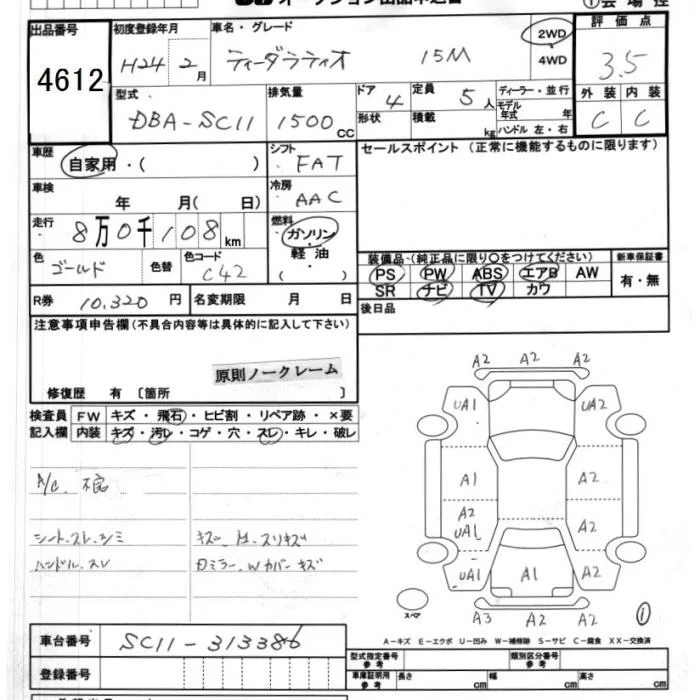 オークション出品申込書
①会場控
出品番号 初度登録年月 車名・グレード 評価点
4612 H24 2月 ティーダラティオ 15M 2WD 4WD 3.5
型式 排気量 ドア 定員 ディーラー・並行 外装 内装
DBA-SC11 1500CC 4 5人 モデル年式 年 C C
形状 積載 kg ハンドル 左・右
車歴 自家用・( ) シフト FAT セールスポイント (正常に機能するものに限ります)
車検 年 月( 日) 冷房 AAC
走行 8万0千108km 燃料 ガソリン 軽油 ( )
色 ゴールド 色替 色コード C42
装備品(純正品に限り○をつけてください) 新車保証書
PS PW ABS エアB AW 有・無
SR ナビ TV カワ
R券 10,320円 名変期限 月 日 後日品
注意事項申告欄(不具合内容等は具体的に記入して下さい)
原則ノークレーム
修復歴 有 〔箇所 〕
検査員 FW キズ・飛石・ヒビ割・リペア跡・×要
記入欄 内装 キズ・汚レ・コゲ・穴・スレ・キレ・破レ
A/C 不良
シート.スレ.シミ キズ.
ハンドル.スレ
A2 A2 A2
UA1 UA2
A1 A2
A2
UA1 A2
UA1 A1 A2
A3 A2 A2
スペア ①
A-キズ E-エクボ U-凹み W-補修跡 S-サビ C-腐食 XX-交換済
車台番号 SC11-313386
登録番号
型式指定番号 参考 類別区分番号 参考
車庫証明用 参考 長さ cm 幅 cm 高さ cm